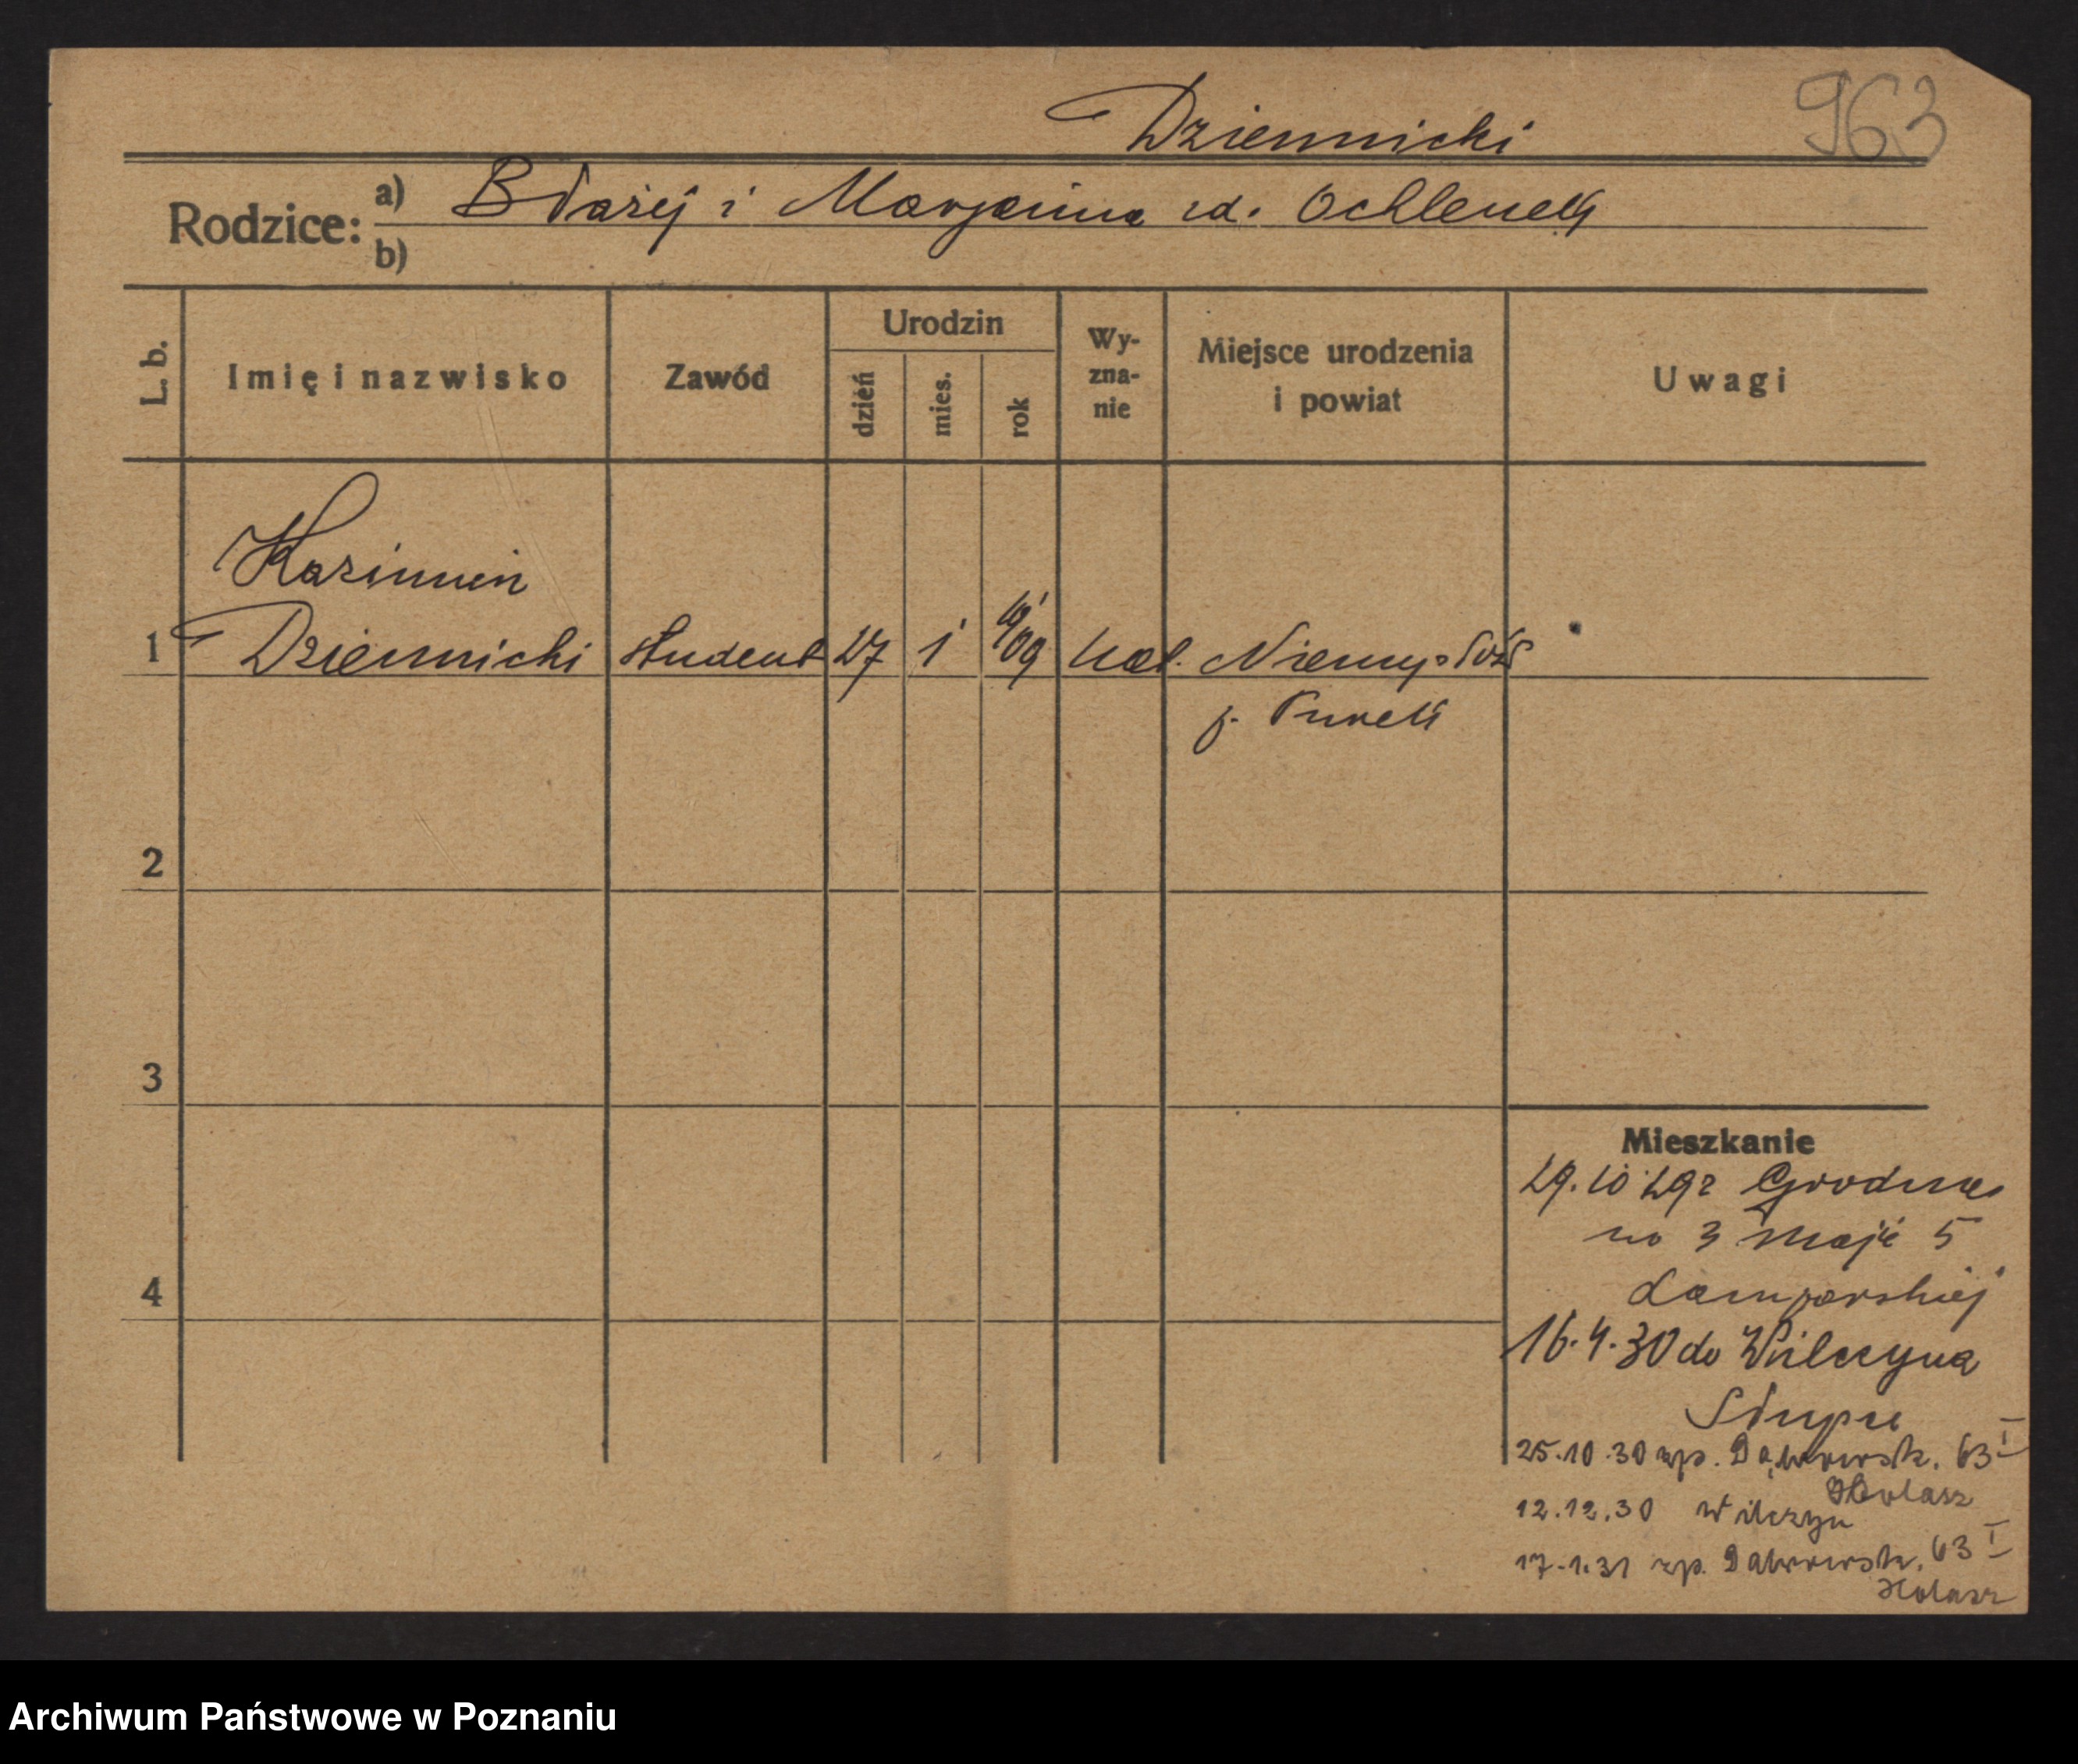 Dziennicki
963
Rodzice: a) Błażej i Marjanna zd. Ochlenek
b)
L. b.
Imię i nazwisko
Zawód
Urodzin
dzień
mies.
rok
Wy-
zna-
nie
Miejsce urodzenia
i powiat
Uwagi
Kazimierz
1 Dziennicki student 27 1 09 kat.
p. Turek
2
3
4
Mieszkanie
29.10 29 z Grodna
na 3 Maja 5
16.4.30 do Wilczyna
Słupca
25.10.30 zp. Dąbrowsk. 63 I
Holasz
12.12.30 Wilczyn
17.1.31 zp. Dąbrowsk. 63 I
Holasz
Archiwum Państwowe w Poznaniu